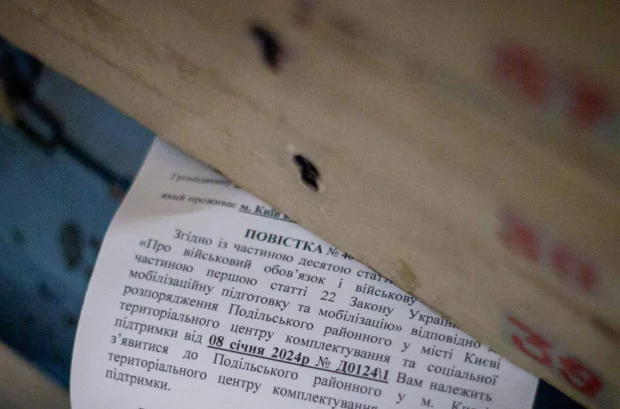 який проживає м. Київ
ПОВІСТКА №
Згідно із частиною десятою
«Про військовий обов'язок і військову
частиною першою статті 22 Закону
мобілізаційну підготовку та мобілізацію» відповідно
розпорядження Подільського районного у місті Києві
територіального центру комплектування та соціальної
підтримки від 08 січня 2024р № Д0124\1 Вам належить
з'явитися до Подільського районного у м.
територіального центру комплектування
підтримки.
39